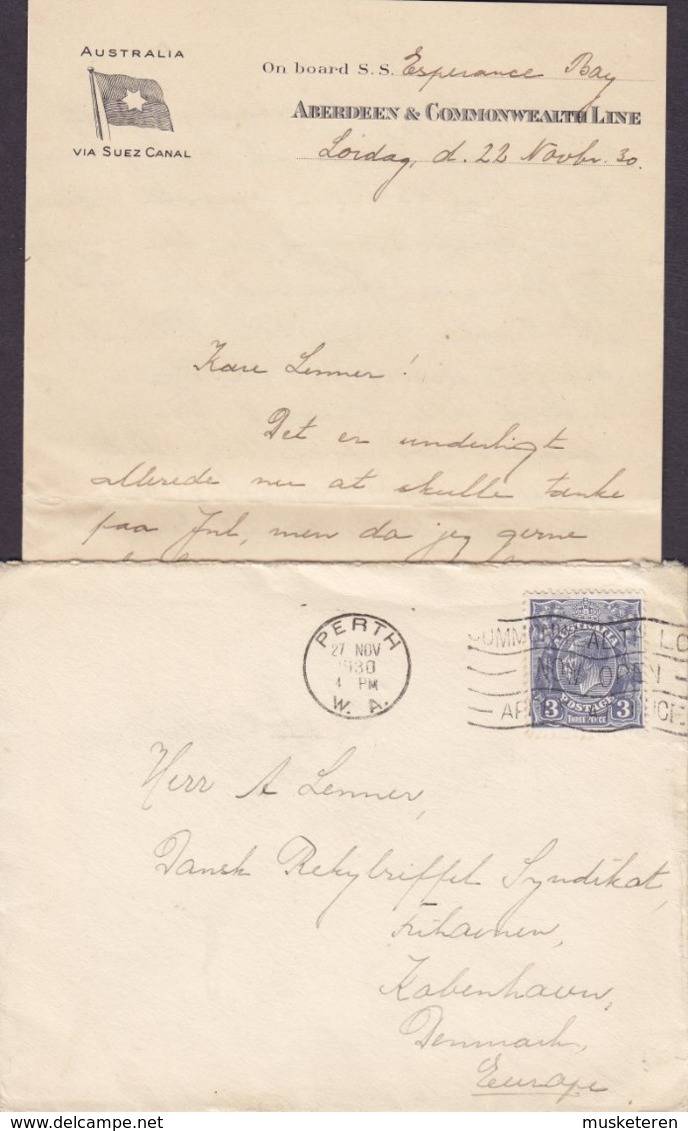 AUSTRALIA
VIA SUEZ CANAL
On board S. S. Esperance Bay
ABERDEEN & COMMONWEALTH LINE
Lördag, d. 22 Novbr. 30.
Kære Lenner!
Det er underligt
allerede nu at skulle tænke
paa Jul, men da jeg gerne
PERTH
27 NOV
1930
4 PM
W. A.
AUSTRALIA
POSTAGE
3 THREE PENCE 3
NOW OPEN
Herr A Lenner,
Dansk Rekylriffel Syndikat,
Frihavnen,
København,
Denmark,
Europe
© delcampe.net
musketeren